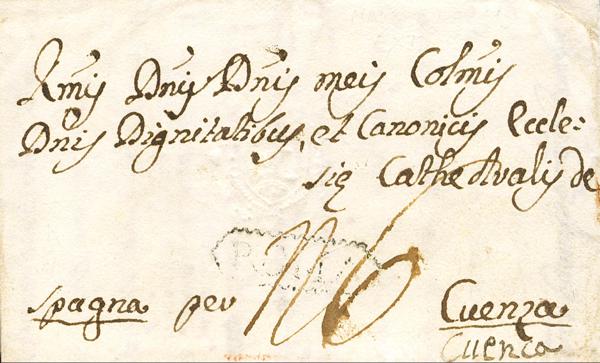 Rmis Dnis Dnis meis Colmis
Dnis Dignitatibus, et Canonicis Eccle:
sie Cathedralis de
ROMA
spagna per Cuenza
Cuenca